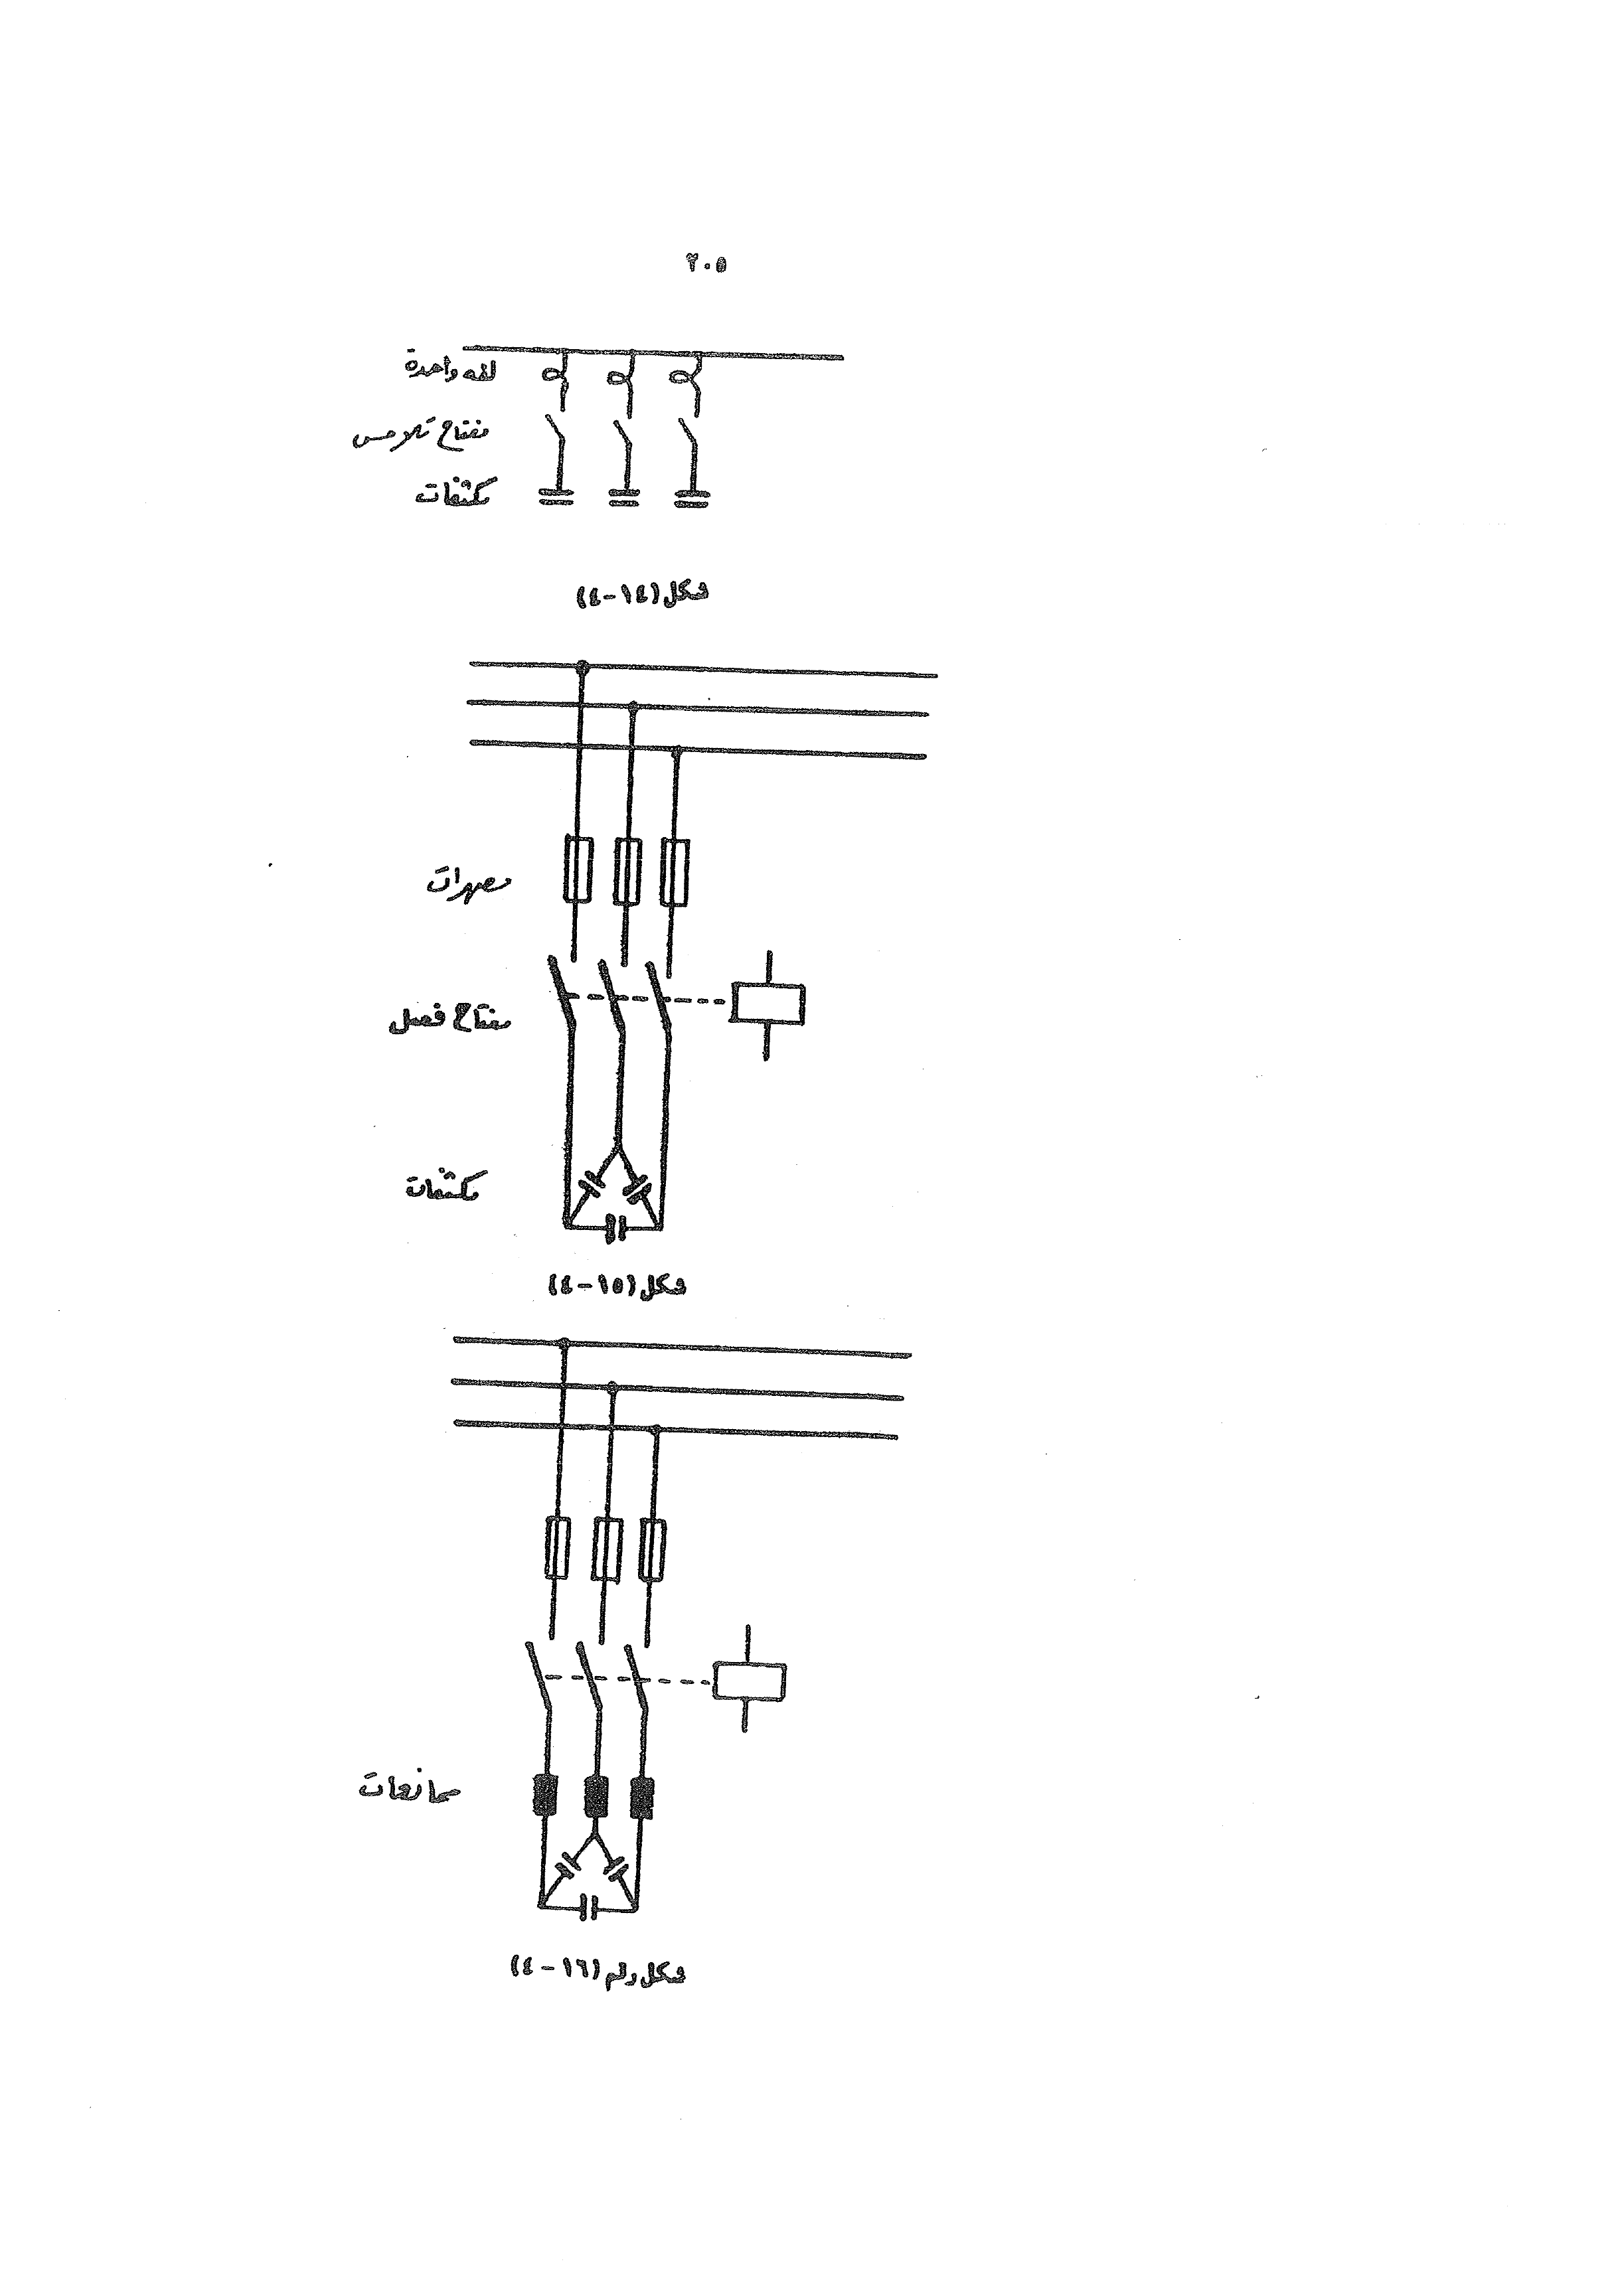 ٢٠٥
لفه واحدة
مفتاح تلامس
مكثفات
شكل (١٤-٤)
مصهرات
مفتاح فصل
مكثفات
شكل (١٥-٤)
ممانعات
شكل رقم (١٦-٤)